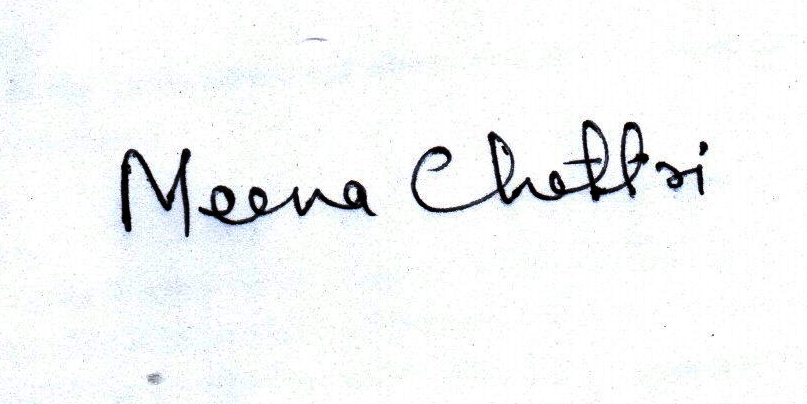 Meena Chettri